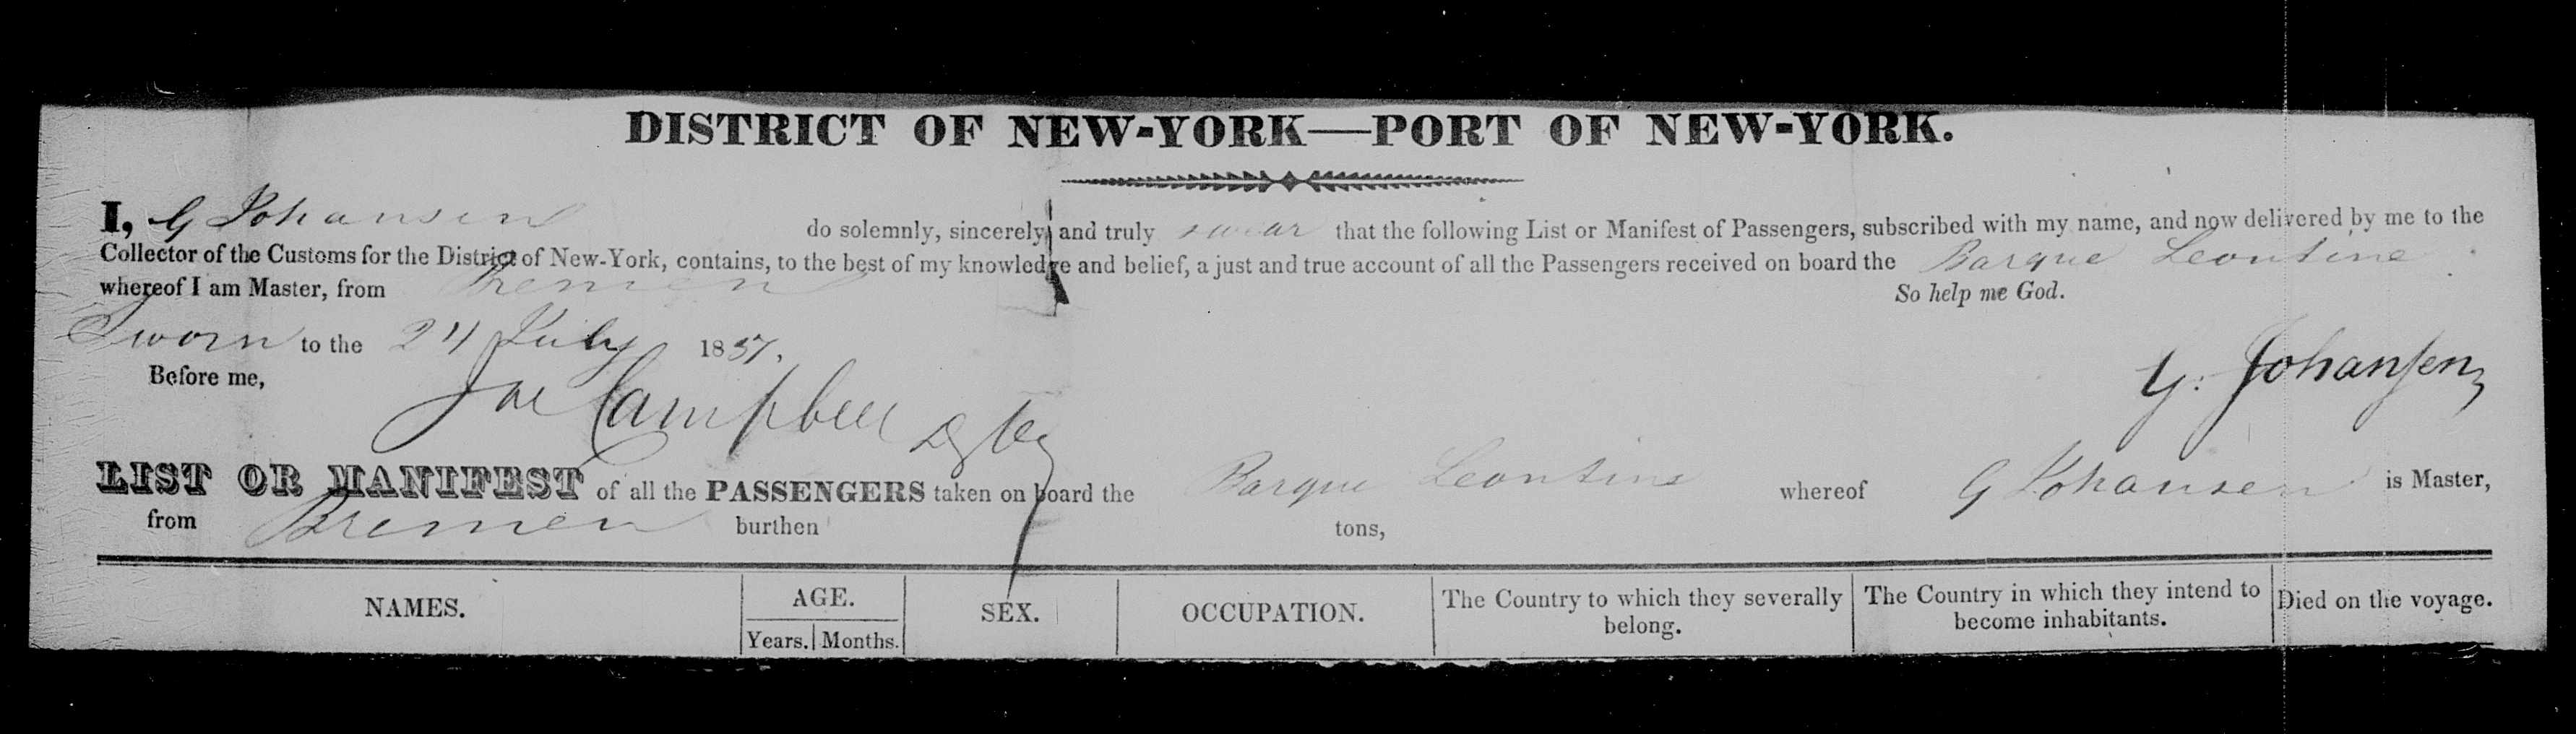 DISTRICT OF NEW-YORK—PORT OF NEW-YORK.
I, G Johansen do solemnly, sincerely and truly swear that the following List or Manifest of Passengers, subscribed with my name, and now delivered by me to the
Collector of the Customs for the District of New-York, contains, to the best of my knowledge and belief, a just and true account of all the Passengers received on board the Barque Leontine
whereof I am Master, from Bremen So help me God.
Sworn to the July 1857.
Before me,
Campbell
G. Johansen
LIST OR MANIFEST of all the PASSENGERS taken on board the Barque Leontine whereof G Johansen is Master,
from Bremen burthen tons,
NAMES. AGE. SEX. OCCUPATION. The Country to which they severally belong. The Country in which they intend to become inhabitants. Died on the voyage.
Years. Months.